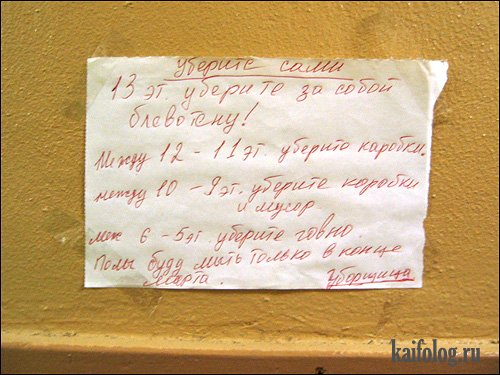 уберите сами
13 эт. уберите за собой
блевотину!
Между 12 - 11 эт. уберите каробки.
между 10 - 9 эт. уберите коробки
и мусор
меж 6 - 5 эт. уберите говно.
Полы буду мыть только в конце
Марта.
Уборщица
kaifolog.ru